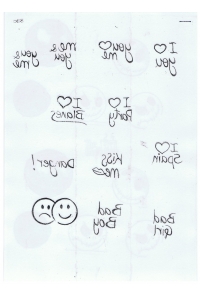 I ♡
you
you ♡
me
me &
you
you &
me
I ♡
Party
I ♡
Blanes
I ♡
Spain
Kiss
me
Danger!
Bad
Girl
Bad
Boy